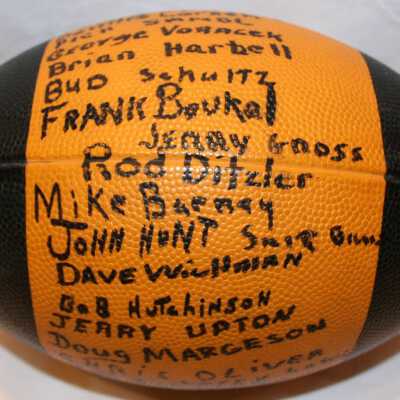 GEORGE VORACEK
Brian Harbell
BUD Schultz
FRANK Boukal
JERRY GROSS
Rod Ditzler
MiKe Barnay
JOHN HUNT
DAVE WICHMAN
BOB HUTCHINSON
JERRY UPTON
DOUG MARGESON
OLIVER